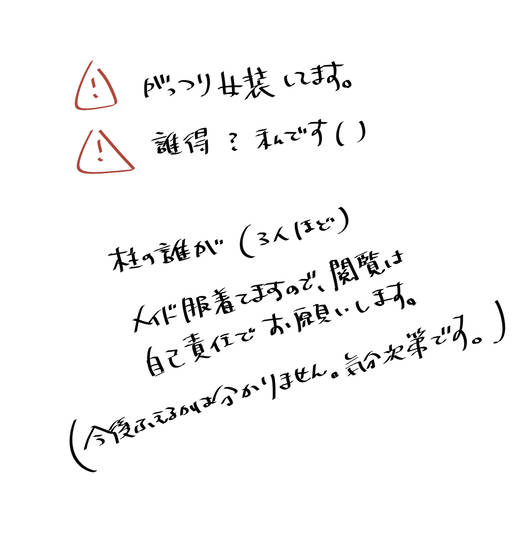 がっつり女装してます。
誰得？私です（）
柱の誰が（3人ほど）
メイド服着てますので、閲覧は
自己責任でお願いします。
（今後ふえるかは分かりません。気分次第です。）